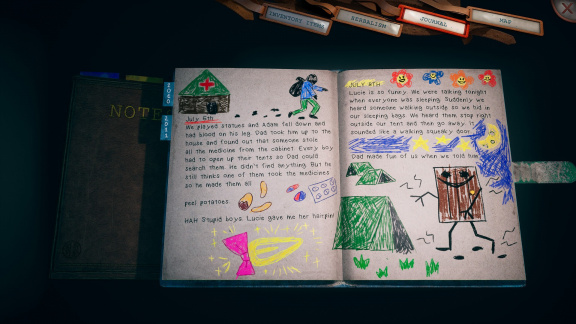 INVENTORY ITEMS
HERBALISM
JOURNAL
MAP
NOTE
1980
2011
July 5th
We played statues and Adam fell down and
had blood on his leg. Dad took him up to the
house and found out that someone stole
all the medicine from the cabinet. Every boy
had to open up their tents so Dad could
search them. He didn't find anything. But he
still thinks one of them took the medicines
so he made them all
peel potatoes.
HAH Stupid boys. Lucie gave me her hairpin!
JULY 8TH
Lucie is so funny. We were talking tonight
when everyone was sleeping. Suddenly we
heard someone walking outside so we hid in
our sleeping bags. We heard them stop right
outside our tent and then go away. It
sounded like a walking squeaky door.
Dad made fun of us when we told him.